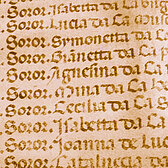 Soror. Isabetta da La
Soror. Lucia da La
Soror. Symonetta da L
Soror. Gianetta da La
Soror. Agnesina da La
Soror. Anna da La Co
Soror. Cecilia da La
Soror. Isabetta da L
Soror. Joanna de La
Soror. Catalucia da